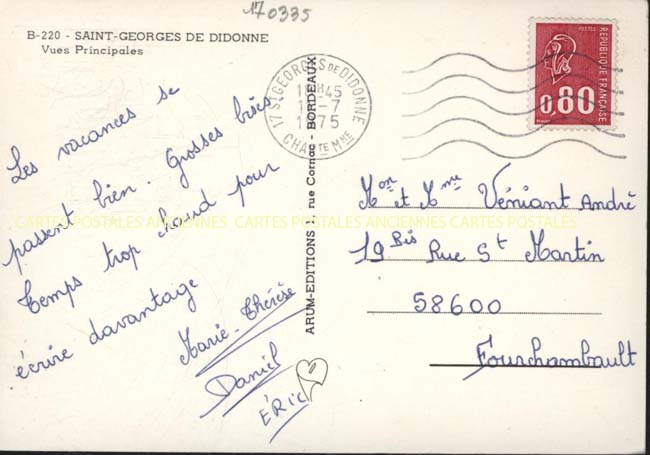 170335
B-220 - SAINT-GEORGES DE DIDONNE
Vues Principales
Les vacances se
passent bien. Grosses bises
Temps trop chaud pour
écrire davantage
Marie-Thérèse
Daniel
ÉRIC
ARUM-EDITIONS - rue Cornac - BORDEAUX
17 ST GEORGES DE DIDONNE
H45
-7
1975
CHARTE MME
POSTES
REPUBLIQUE FRANÇAISE
0,80
Mon et Mme Véniant André
19 Bis Rue St Martin
58600
Fourchambault
CARTES POSTALES ANCIENNES CARTES POSTALES